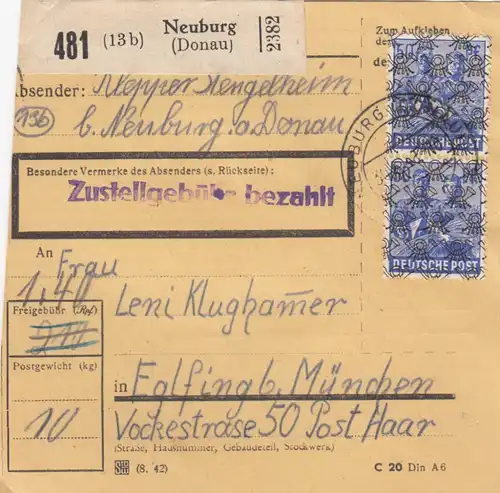 481 (13b) Neuburg (Donau) 2382
Zum Aufkleben
Absender: Klepper Hengelheim
13b b. Neuburg a. Donau
Besondere Vermerke des Absenders (s. Rückseite):
Zustellgebühr bezahlt
NEUBURG
DEUTSCHE POST
DEUTSCHE POST
An Frau
1,40
Freigebühr (Rpf)
210
Leni Klugham̄er
Postgewicht (kg)
10
in Eglfing b. München
Vockestraße 50 Post Haar
(Straße, Hausnummer, Gebäudeteil, Stockwerk)
(8. 42)
C 20 Din A6